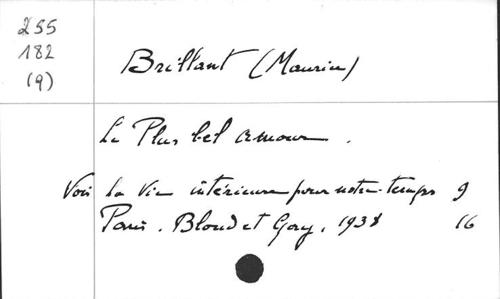 255
182
(9)
Brillant (Maurice)
Le Plus bel amour.
Voir La Vie intérieure pour notre temps 9
Paris. Bloud et Gay, 1938 16